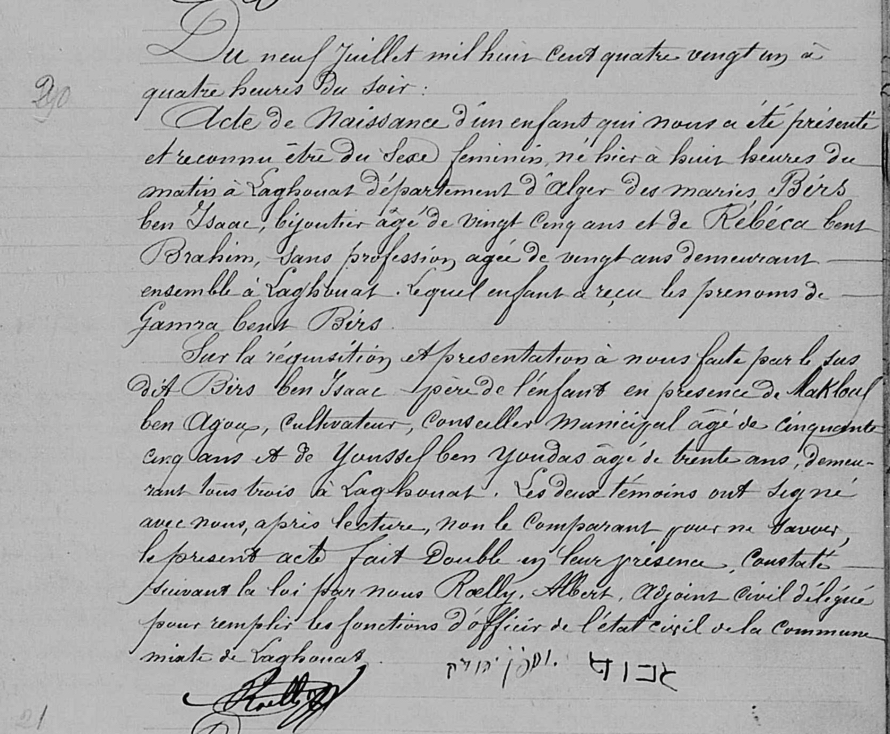 Du neuf Juillet mil huit cent quatre vingt un à
quatre heures du soir :
290
Acte de Naissance d'un enfant qui nous a été présenté
et reconnu être du Sexe feminin, né hier à huit heures du
matin à Laghouat département d'Alger des mariés Bérs
ben Isaac, bijoutier âgé de vingt cinq ans et de Rébéca bent
Brahim, sans profession, agée de vingt ans demeurant
ensemble à Laghouat. Lequel enfant a reçu les prenoms de
Gamra bent Bérs.
Sur la réquisition et presentation à nous faite par le sus
dit Bérs ben Isaac père de l'enfant en presence de Makloul
ben Agou, cultivateur, conseiller municipal âgé de cinquante
cinq ans et de Youssef ben Youdas âgé de trente ans, demeu-
rant tous trois à Laghouat. Les deux témoins ont signé
avec nous, après lecture, non le comparant pour ne savoir,
le present acte fait Double en leur présence, constaté
suivant la loi par nous Roelly, Albert, adjoint civil délégué
pour remplir les fonctions d'officier de l'état civil de la commune
mixte de Laghouat.
Roelly
21